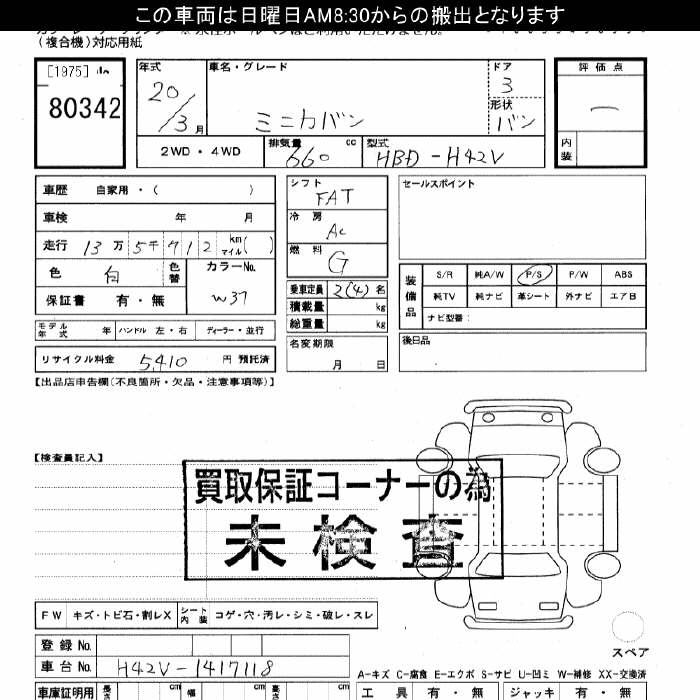 この車両は日曜日AM8:30からの搬出となります
(複合機)対応用紙
[1975]
80342
年式 20/3月
車名・グレード ミニカバン
ドア 3
形状 バン
評価点 ー
内装
2WD・4WD
排気量 660 cc
型式 HBD-H42V
車歴 自家用・( )
車検 年 月
走行 13万5千912 km マイル( )
色 白 色替
カラーNo. W37
保証書 有・無
モデル年式 年 ハンドル 左・右 ディーラー・並行
リサイクル料金 5,410 円 預託済
シフト FAT
冷房 AC
燃料 G
乗車定員 2(4)名
積載量 kg
総重量 kg
名変期限 月 日
セールスポイント
装備品
S/R 純A/W P/S P/W ABS
純TV 純ナビ 革シート 外ナビ エアB
ナビ型番:
後日品
【出品店申告欄(不良箇所・欠品・注意事項等)】
【検査員記入】
買取保証コーナーの為
未検査
FW キズ・トビ石・割レX シート内装 コゲ・穴・汚レ・シミ・破レ・スレ
スペア
登録No.
車台No. H42V-1417118
A-キズ C-腐食 E-エクボ S-サビ U-凹ミ W-補修 XX-交換済
車庫証明用 長さ cm 幅 cm 高さ cm
工具 有・無 ジャッキ 有・無